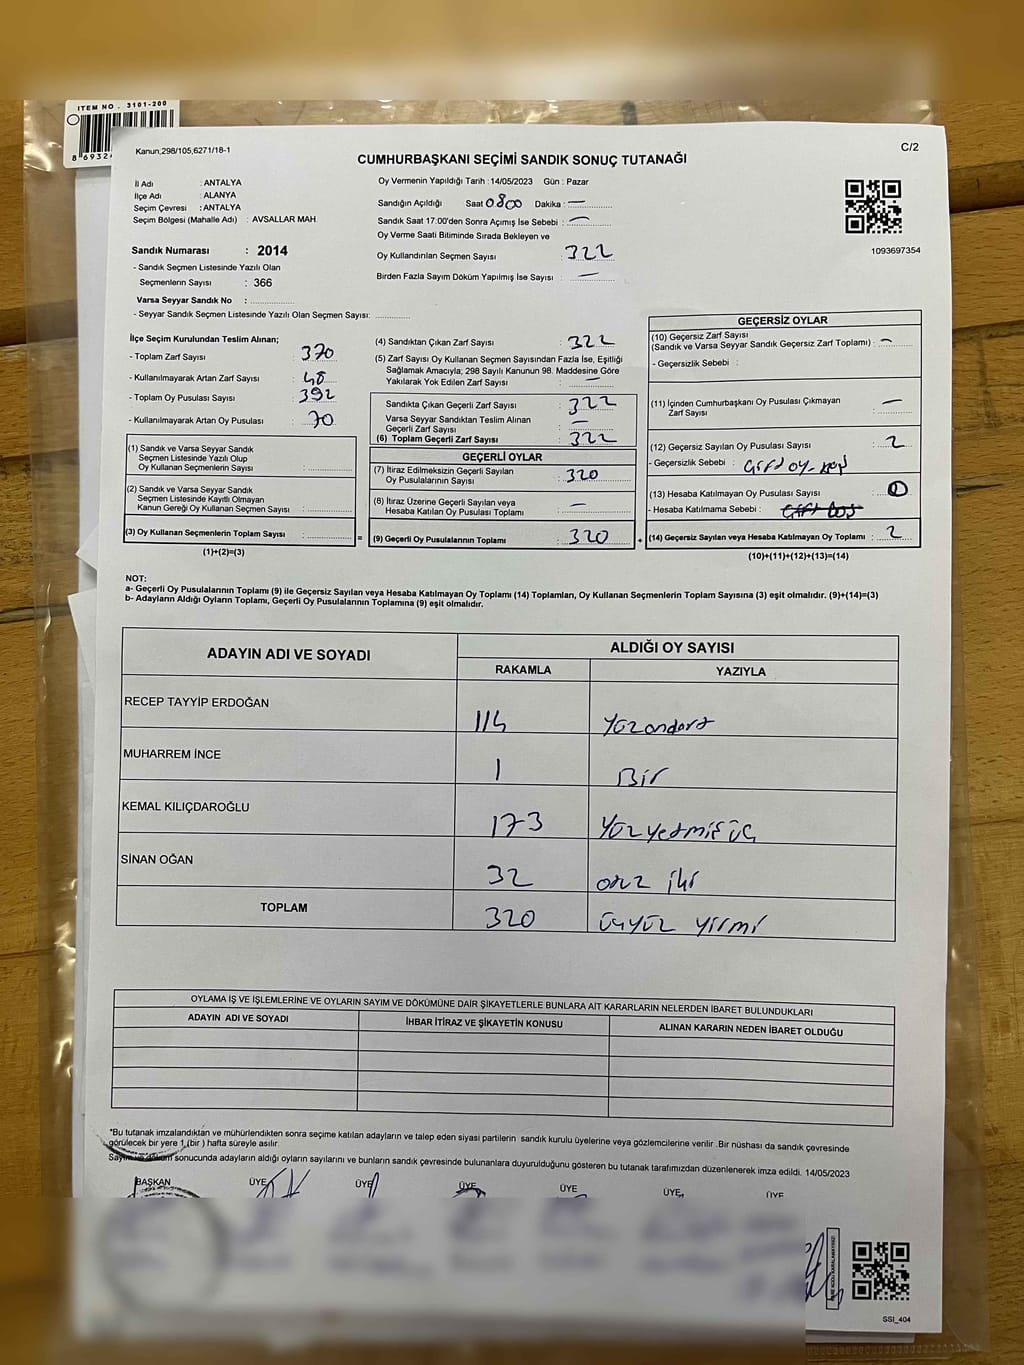 ITEM NO . 3101-200
8 6932
Kanun;298/105,6271/18-1
C/2
CUMHURBAŞKANI SEÇİMİ SANDIK SONUÇ TUTANAĞI
İl Adı : ANTALYA
İlçe Adı : ALANYA
Seçim Çevresi : ANTALYA
Seçim Bölgesi (Mahalle Adı) : AVSALLAR MAH.
Sandık Numarası : 2014
- Sandık Seçmen Listesinde Yazılı Olan
Seçmenlerin Sayısı : 366
Varsa Seyyar Sandık No :
- Seyyar Sandık Seçmen Listesinde Yazılı Olan Seçmen Sayısı:
Oy Vermenin Yapıldığı Tarih : 14/05/2023 Gün : Pazar
Sandığın Açıldığı Saat 0800 Dakika : —
Sandık Saat 17:00'den Sonra Açımış İse Sebebi : —
Oy Verme Saati Bitiminde Sırada Bekleyen ve
Oy Kullandırılan Seçmen Sayısı : 322
Birden Fazla Sayım Döküm Yapılmış İse Sayısı : —
1093697354
İlçe Seçim Kurulundan Teslim Alınan;
- Toplam Zarf Sayısı : 370
- Kullanılmayarak Artan Zarf Sayısı : 48
- Toplam Oy Pusulası Sayısı : 392
- Kullanılmayarak Artan Oy Pusulası : 70
(1) Sandık ve Varsa Seyyar Sandık
Seçmen Listesinde Yazılı Olup
Oy Kullanan Seçmenlerin Sayısı :
(2) Sandık ve Varsa Seyyar Sandık
Seçmen Listesinde Kayıtlı Olmayan
Kanun Gereği Oy Kullanan Seçmen Sayısı :
(3) Oy Kullanan Seçmenlerin Toplam Sayısı : =
(1)+(2)=(3)
(4) Sandıktan Çıkan Zarf Sayısı : 322
(5) Zarf Sayısı Oy Kullanan Seçmen Sayısından Fazla İse, Eşitliği
Sağlamak Amacıyla; 298 Sayılı Kanunun 98. Maddesine Göre
Yakılarak Yok Edilen Zarf Sayısı : —
Sandıkta Çıkan Geçerli Zarf Sayısı : 322
Varsa Seyyar Sandıktan Teslim Alınan
Geçerli Zarf Sayısı : —
(6) Toplam Geçerli Zarf Sayısı : 322
GEÇERLİ OYLAR
(7) İtiraz Edilmeksizin Geçerli Sayılan
Oy Pusulalarının Sayısı : 320
(8) İtiraz Üzerine Geçerli Sayılan veya
Hesaba Katılan Oy Pusulası Toplamı : —
(9) Geçerli Oy Pusulalarının Toplamı : 320 +
GEÇERSİZ OYLAR
(10) Geçersiz Zarf Sayısı
(Sandık ve Varsa Seyyar Sandık Geçersiz Zarf Toplamı) : —
- Geçersizlik Sebebi :
(11) İçinden Cumhurbaşkanı Oy Pusulası Çıkmayan
Zarf Sayısı : —
(12) Geçersiz Sayılan Oy Pusulası Sayısı : 2
- Geçersizlik Sebebi :
(13) Hesaba Katılmayan Oy Pusulası Sayısı :
- Hesaba Katılmama Sebebi :
(14) Geçersiz Sayılan veya Hesaba Katılmayan Oy Toplamı : 2
(10)+(11)+(12)+(13)=(14)
NOT:
a- Geçerli Oy Pusulalarının Toplamı (9) ile Geçersiz Sayılan veya Hesaba Katılmayan Oy Toplamı (14) Toplamları, Oy Kullanan Seçmenlerin Toplam Sayısına (3) eşit olmalıdır. (9)+(14)=(3)
b- Adayların Aldığı Oyların Toplamı, Geçerli Oy Pusulalarının Toplamına (9) eşit olmalıdır.
ADAYIN ADI VE SOYADI
ALDIĞI OY SAYISI
RAKAMLA YAZIYLA
RECEP TAYYİP ERDOĞAN 114 Yüzondört
MUHARREM İNCE 1 Bir
KEMAL KILIÇDAROĞLU 173 Yüzyetmişüç
SİNAN OĞAN 32 otuz iki
TOPLAM 320 üçyüz yirmi
OYLAMA İŞ VE İŞLEMLERİNE VE OYLARIN SAYIM VE DÖKÜMÜNE DAİR ŞİKAYETLERLE BUNLARA AİT KARARLARIN NELERDEN İBARET BULUNDUKLARI
ADAYIN ADI VE SOYADI İHBAR İTİRAZ VE ŞİKAYETİN KONUSU ALINAN KARARIN NEDEN İBARET OLDUĞU
*Bu tutanak imzalandıktan ve mühürlendikten sonra seçime katılan adayların ve talep eden siyasi partilerin sandık kurulu üyelerine veya gözlemcilerine verilir .Bir nüshası da sandık çevresinde
görülecek bir yere 1 (bir ) hafta süreyle asılır.
Sayım ve döküm sonucunda adayların aldığı oyların sayılarını ve bunların sandık çevresinde bulunanlara duyurulduğunu gösteren bu tutanak tarafımızdan düzenlenerek imza edildi. 14/05/2023
BAŞKAN ÜYE ÜYE ÜYE ÜYE ÜYE ÜYE
SSI_404